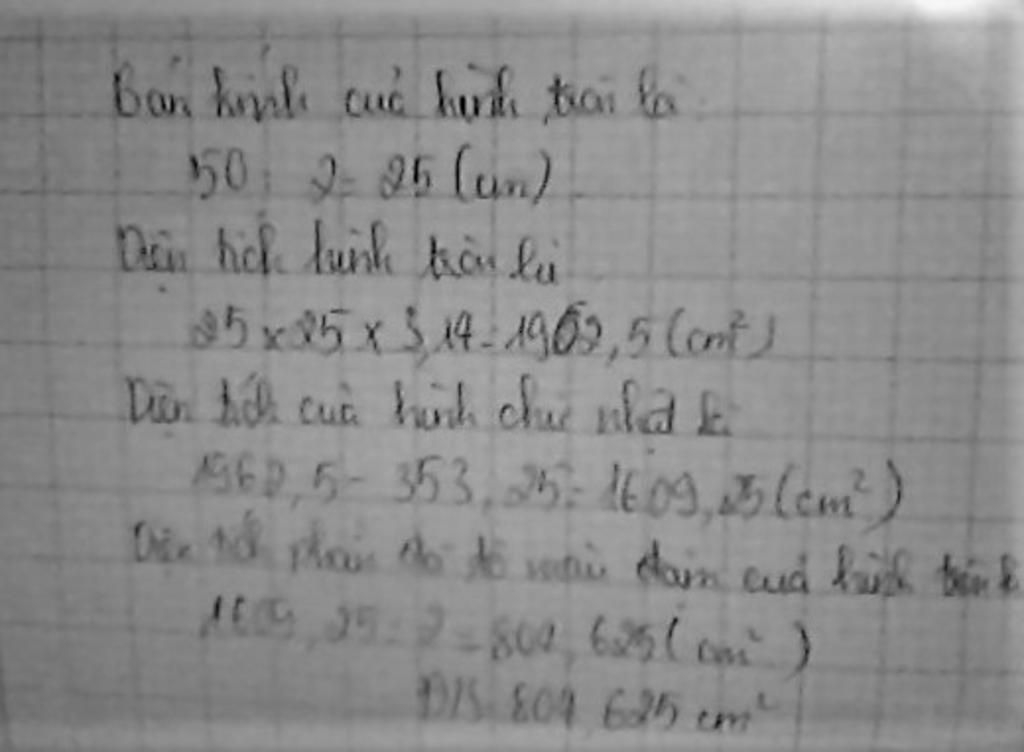 Bán kính của hình tròn là
50 : 2 = 25 (cm)
Diện tích hình tròn là
25 x 25 x 3,14 = 1962,5 (cm²)
Diện tích của hình chữ nhật là
1962,5 - 353,25 = 1609,25 (cm²)
Diện tích phần đã tô màu đậm của hình
1609,25 : 2 = 804,625 (cm²)
Đ/S 804,625 cm²